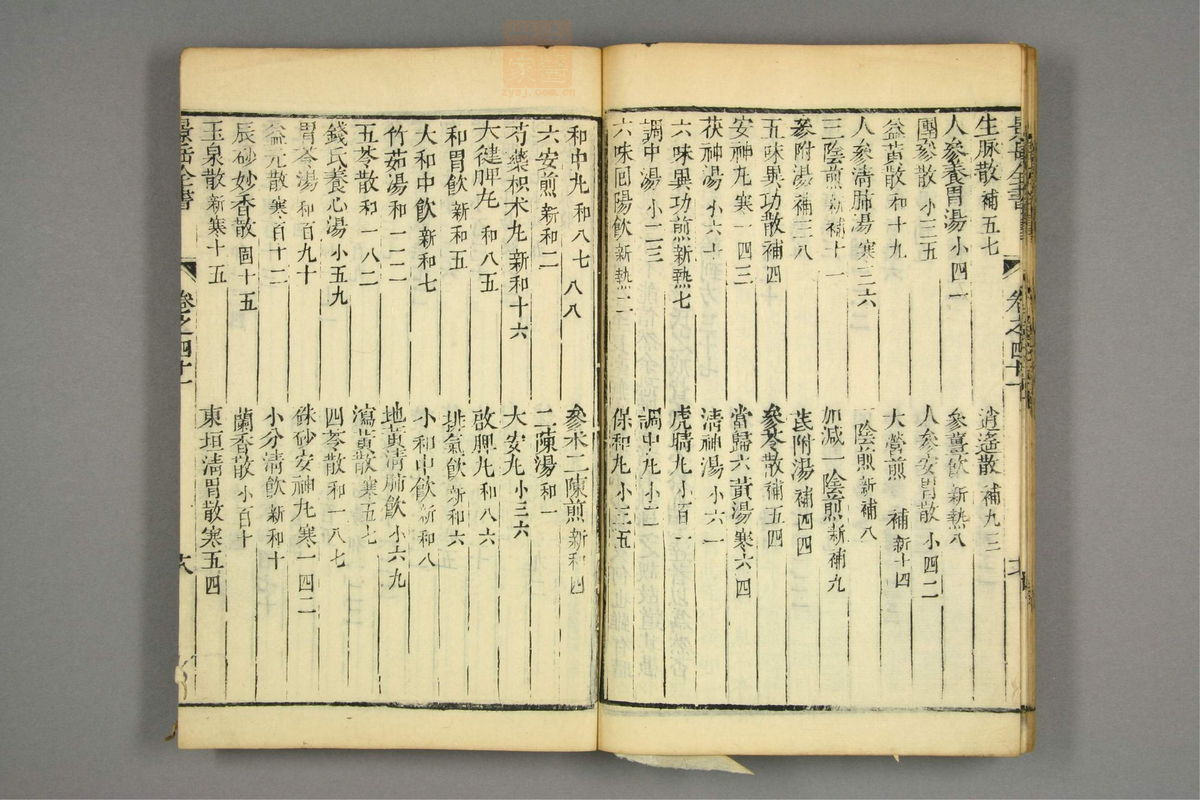 景岳全書
卷之四十一
生脈散 補五七
逍遙散 補九二
人參養胃湯 小四一
參薑飲 新熱八
團參散 小三五
人參安胃散 小四二
益黃散 和十九
大營煎 補新十四
人參清肺湯 寒三六
一陰煎 新補八
三陰煎 新補十一
加減一陰煎 新補九
參附湯 補三八
芪附湯 補四四
五味異功散 補四
參苓散 補五四
安神丸 寒一四三
當歸六黃湯 寒六四
茯神湯 小六十
清神湯 小六一
六味異功煎 新熱七
虎睛丸 小百一
調中湯 小二三
調中丸 小二一
六味囘陽飲 新熱二
保和丸 小三五
和中丸 和八七 八八
參朮二陳煎 新和四
六安煎 新和二
二陳湯 和一
芍藥枳朮丸 新和十六
大安丸 小三六
大健脾丸 和八五
啟脾丸 和八六
和胃飲 新和五
排氣飲 新和六
大和中飲 新和七
小和中飲 新和八
竹茹湯 和一二二
地黃清肺飲 小六九
五苓散 和一八二
瀉黃散 寒五七
錢氏養心湯 小五九
四苓散 和一八七
胃苓湯 和百九十
硃砂安神丸 寒一四二
益元散 寒百十二
小分清飲 新和十
辰砂妙香散 固十五
蘭香散 小百十
玉泉散 新寒十五
東垣清胃散 寒五四
景岳全書
卷之四十一
十八